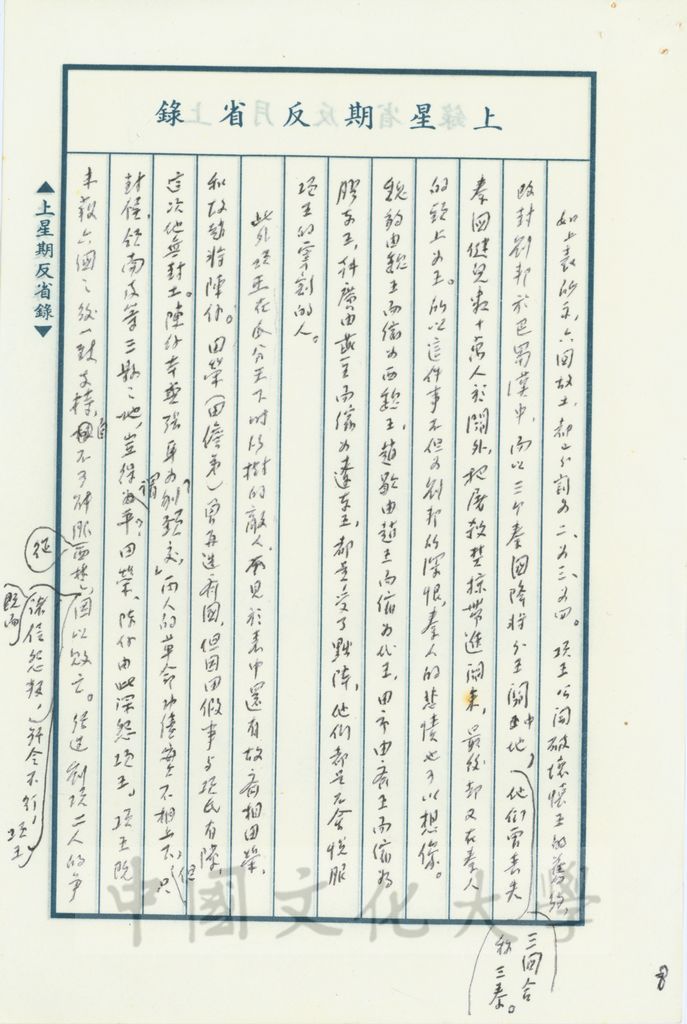 上星期反省錄
如上表所示，六國故土，都分割為二、為三、為四。項王公開破壞懷王的舊約，
改封劉邦於巴蜀漢中，而以三個秦國降將分王關中地，三國合稱三秦。他們曾喪失
秦國健兒數十萬人於關外，把屠殺焚掠帶進關來，最後卻又在秦人
的頭上為王。所以這件事不但為劉邦所深恨，秦人的悲憤也可以想像。
魏豹由魏王而徙為西魏王，趙歇由趙王而徙為代王，田市由齊王而徙為
膠東王，韓廣由燕王而徙為遼東王，都是受了點陣，他們都是不會悅服
項王的宰割的人。
此外項王在瓜分天下時所樹的敵人，不見於表中還有故齊相田榮，
和故趙將陳餘。田榮（田儋弟）曾再造齊國，但因田假事與項氏有隙，
這次他無封土。陳餘本與張耳為刎頸交，兩人的革命功績實不相上下，但只
封侯，領南皮等三縣之地，豈得為平？田榮、陳餘由此深怨項王。項王既
未獲六國之後一致支持，自不可
諸侯怨叛，號令不行，項王
因以敗亡。
▲上星期反省錄▼
中國文化大學
8